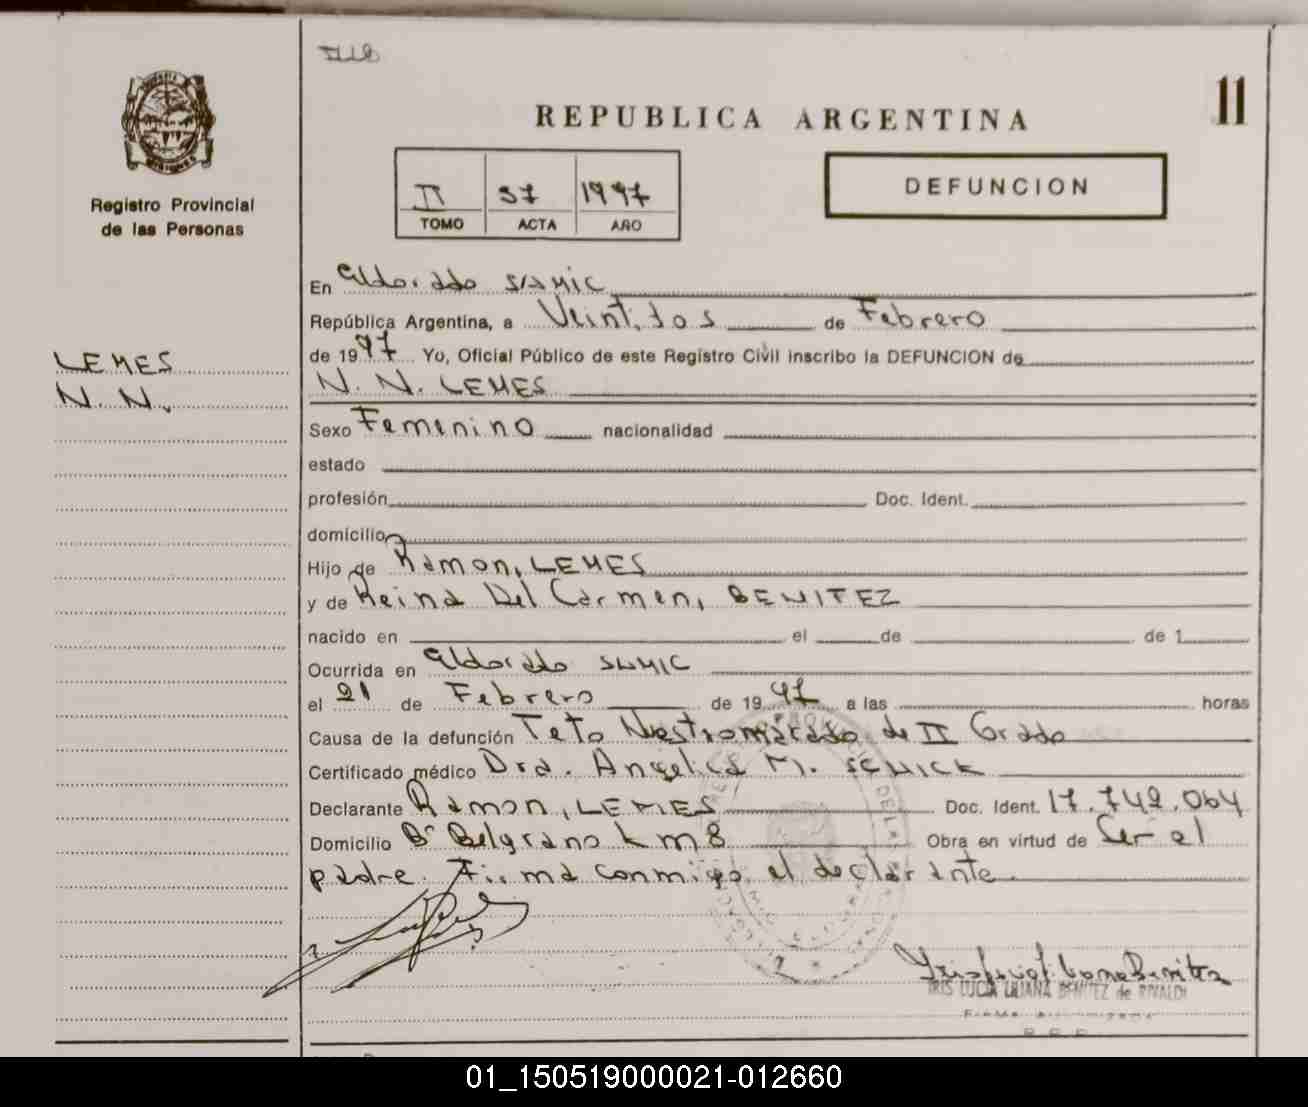 11
REPUBLICA ARGENTINA
DEFUNCION
II 37 1997
TOMO ACTA AÑO
Registro Provincial
de las Personas
LEMES
N. N.
En Eldorado SAMIC
República Argentina, a Veintidos de Febrero
de 1997 Yo, Oficial Público de este Registro Civil inscribo la DEFUNCION de
N. N. LEMES
Sexo Femenino nacionalidad
estado
profesión Doc. Ident.
domicilio
Hijo de Ramon, LEMES
y de Reina Del Carmen, BENITEZ
nacido en el de de 1
Ocurrida en Eldorado SAMIC
el 21 de Febrero de 1997 a las horas
Causa de la defunción Feto de II Grado
Certificado médico Dra. Angelica M.
Declarante Ramon, LEMES Doc. Ident. 17.742.064
Domicilio B° Belgrano km 8 Obra en virtud de Ser el
padre. Firma conmigo el declarante.
IRIS LUCIA LILIANA BENITEZ de RIVALDI
01_150519000021-012660